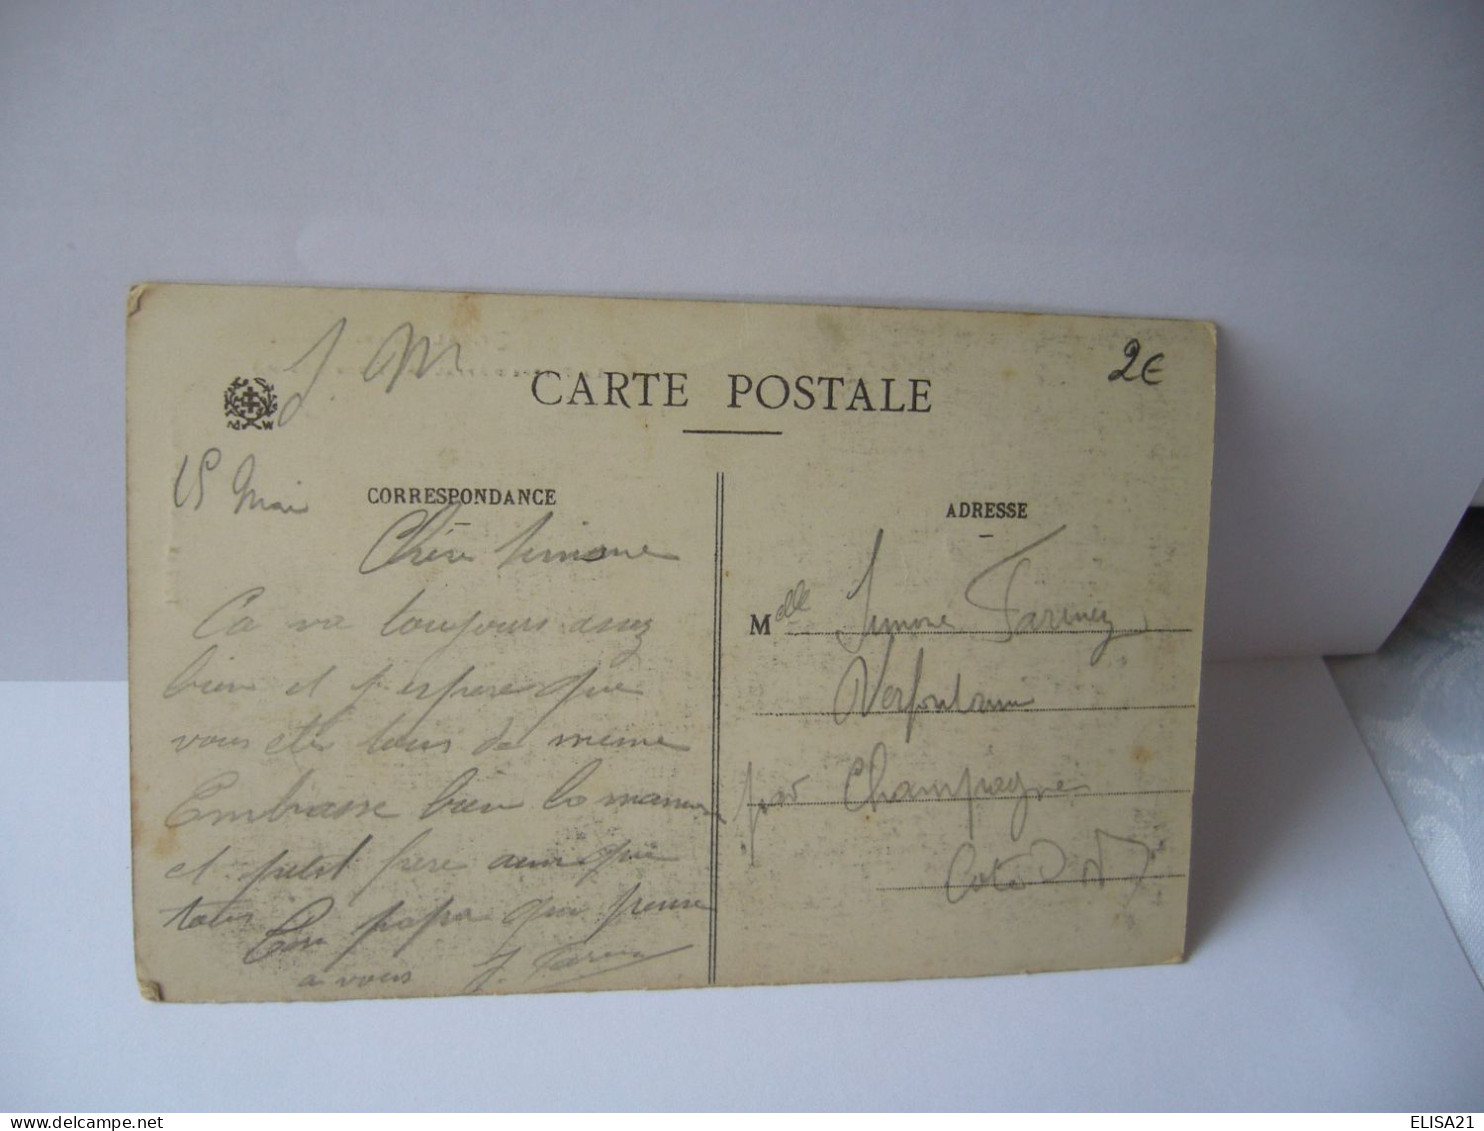 J. M
CARTE POSTALE
2€
15 Mai
CORRESPONDANCE
Chère Simone
Ca va toujours assez
bien et j'espere que
vous etes tous de meme
Embrasse bien la maman
et petit frere ainsi que
tous Ton papa qui pense
a vous J. Farney
ADRESSE
Melle Simone Farney
Verfontaine
par Champagne
Cote d'Or
ELISA21
delcampe.net